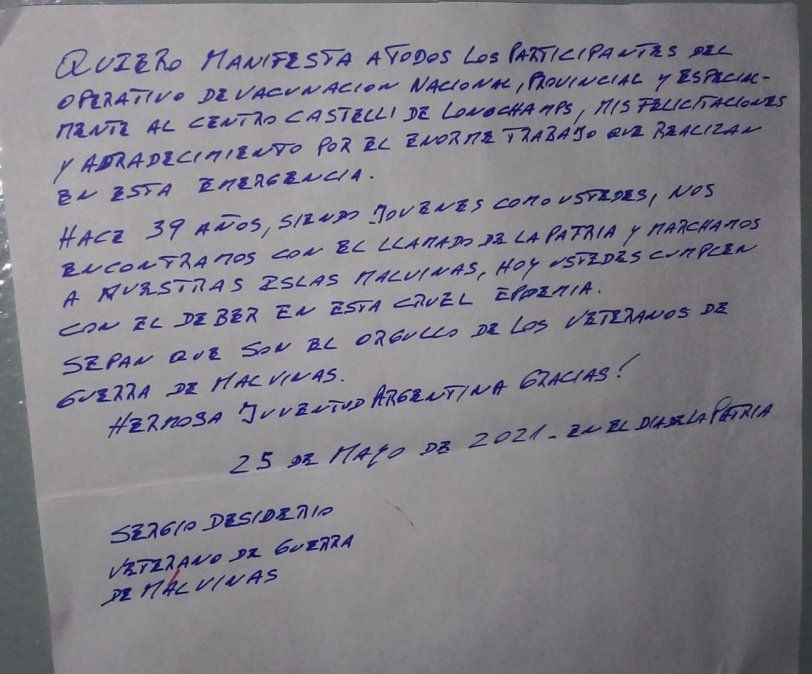 QUIERO MANIFESTA A TODOS LOS PARTICIPANTES DEL
OPERATIVO DE VACUNACION NACIONAL, PROVINCIAL Y ESPECIAL-
MENTE AL CENTRO CASTELLI DE LONGCHAMPS, MIS FELICITACIONES
Y AGRADECIMIENTO POR EL ENORME TRABAJO QUE REALIZAN
EN ESTA EMERGENCIA.
HACE 39 AÑOS, SIENDO JOVENES COMO USTEDES, NOS
ENCONTRAMOS CON EL LLAMADO DE LA PATRIA Y MARCHAMOS
A NUESTRAS ISLAS MALVINAS, HOY USTEDES CUMPLEN
CON EL DEBER EN ESTA CRUEL EPIDEMIA.
SEPAN QUE SON EL ORGULLO DE LOS VETERANOS DE
GUERRA DE MALVINAS.
HERMOSA JUVENTUD ARGENTINA GRACIAS!
25 DE MAYO DE 2021 - EN EL DIA DE LA PATRIA
SERGIO DESIDERIO
VETERANO DE GUERRA
DE MALVINAS